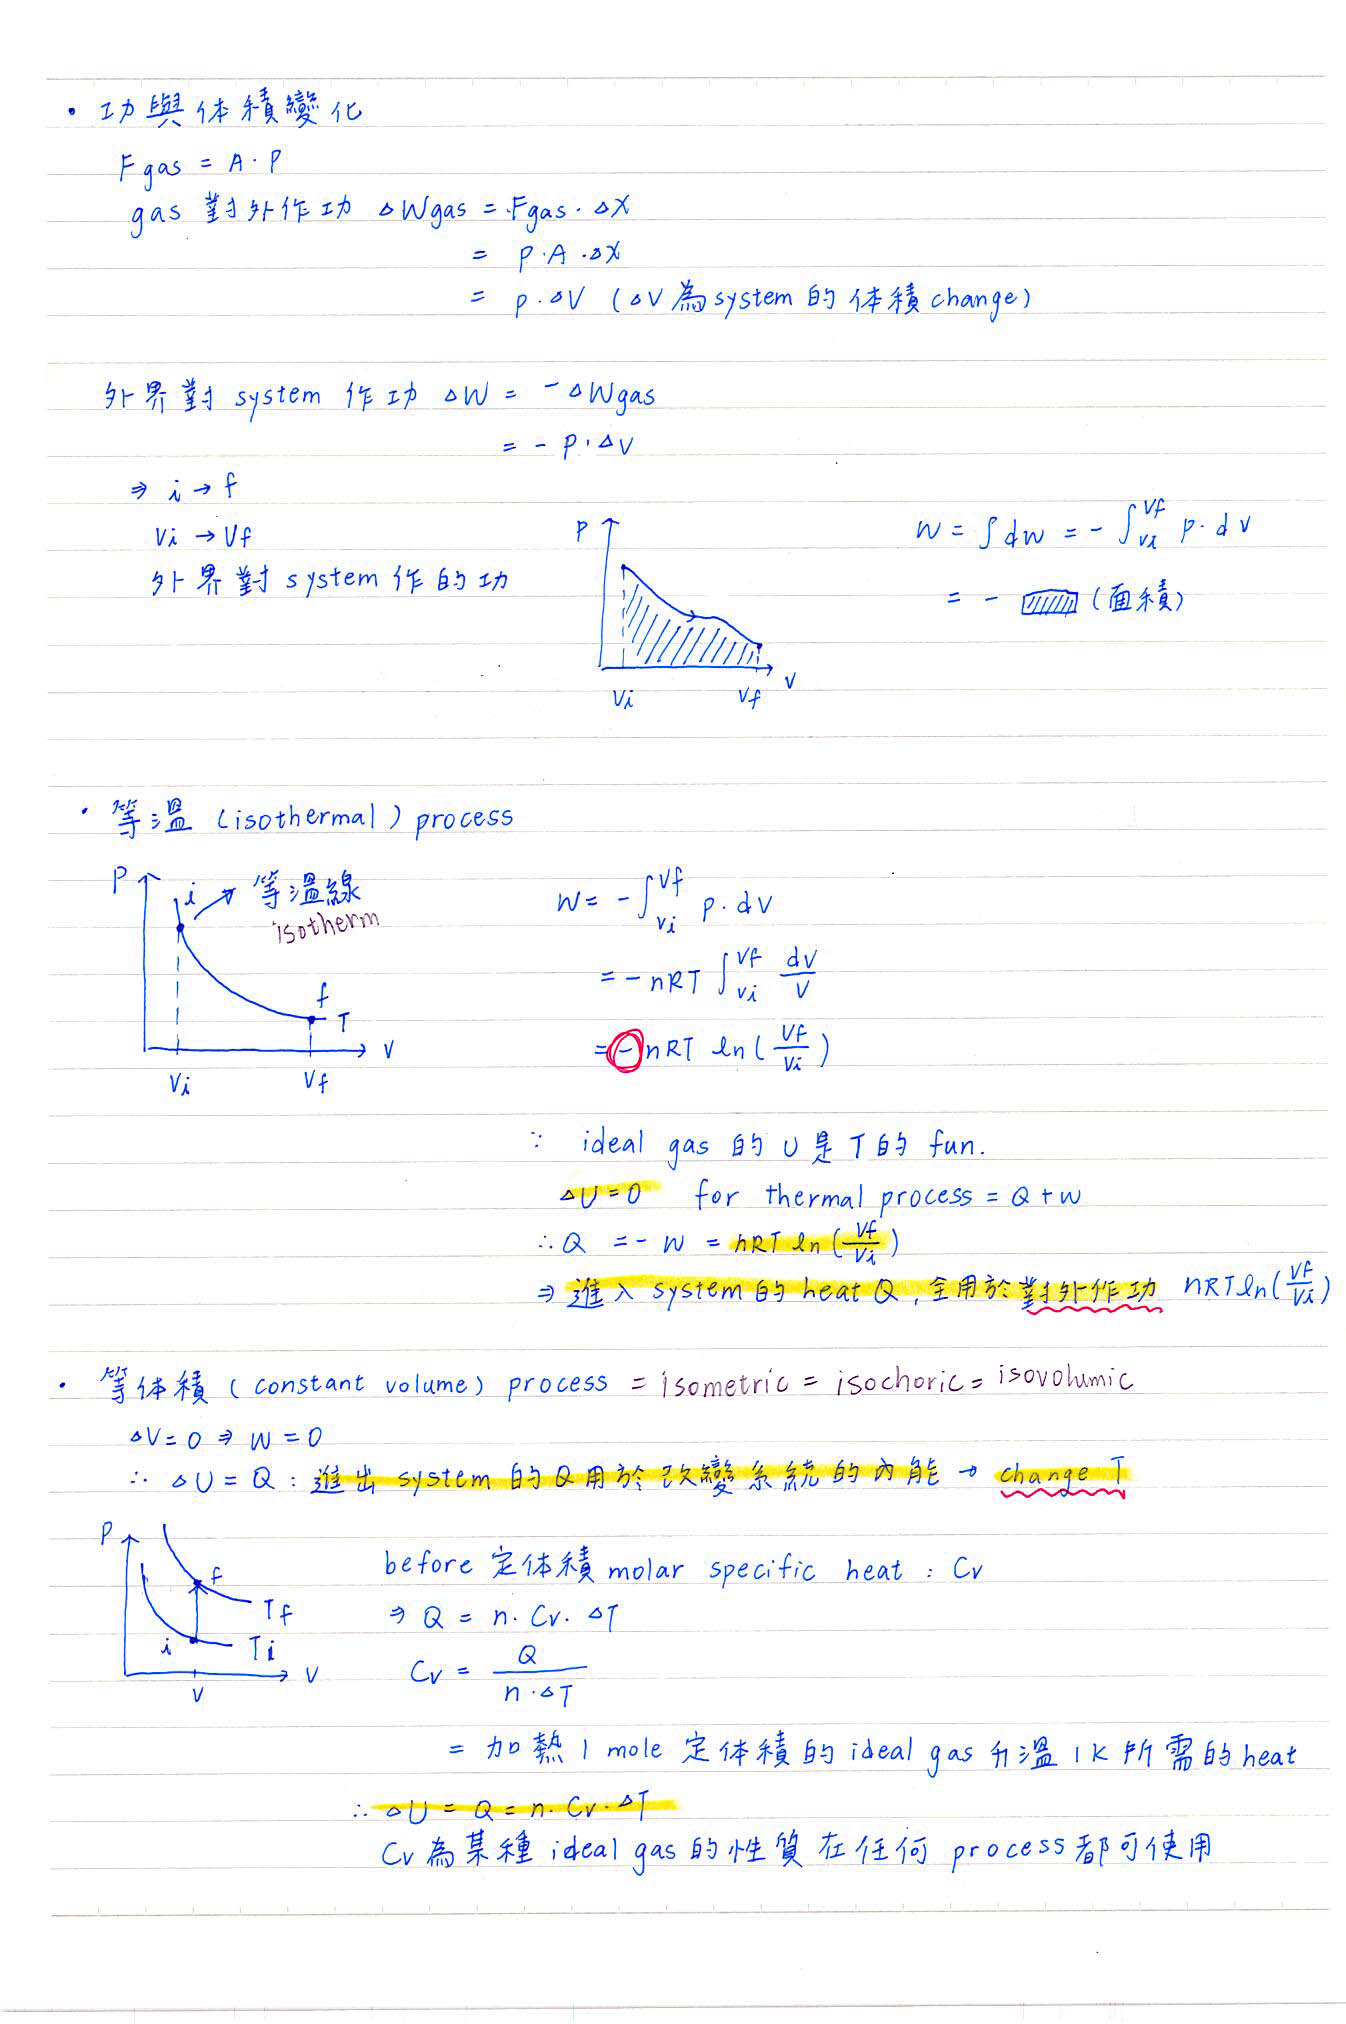 · 功與体積變化
Fgas = A·P
gas 對外作功 △Wgas = Fgas·△X
= P·A·△X
= p·△V (△V為system的体積change)
外界對 system 作功 △W = -△Wgas
= -P·△V
⇒ i→f
Vi→Vf
外界對 system 作的功
P
V
Vi
Vf
W = ∫dW = -∫Vi Vf P·dV
= - (面積)
· 等溫 (isothermal) process
P
i → 等溫線
isotherm
f
T
V
Vi
Vf
W = -∫Vi Vf P·dV
= -nRT ∫Vi Vf dV/V
= -nRT ln(Vf/Vi)
∵ ideal gas 的 U 是 T 的 fun.
△U=0 for thermal process = Q+W
∴ Q = -W = nRT ln(Vf/Vi)
⇒ 進入 system 的 heat Q, 全用於對外作功 nRTln(Vf/Vi)
· 等体積 (constant volume) process = isometric = isochoric = isovolumic
△V=0 ⇒ W=0
∴ △U=Q : 進出 system 的 Q 用於改變系統的內能 → change T
P
f
Tf
i
Ti
V
V
before 定体積 molar specific heat : Cv
⇒ Q = n·Cv·△T
Cv = Q/n·△T
= 加熱 1 mole 定体積的 ideal gas 升溫 1K 所需的 heat
∴ △U = Q = n·Cv·△T
Cv 為某種 ideal gas 的性質 在任何 process 都可使用